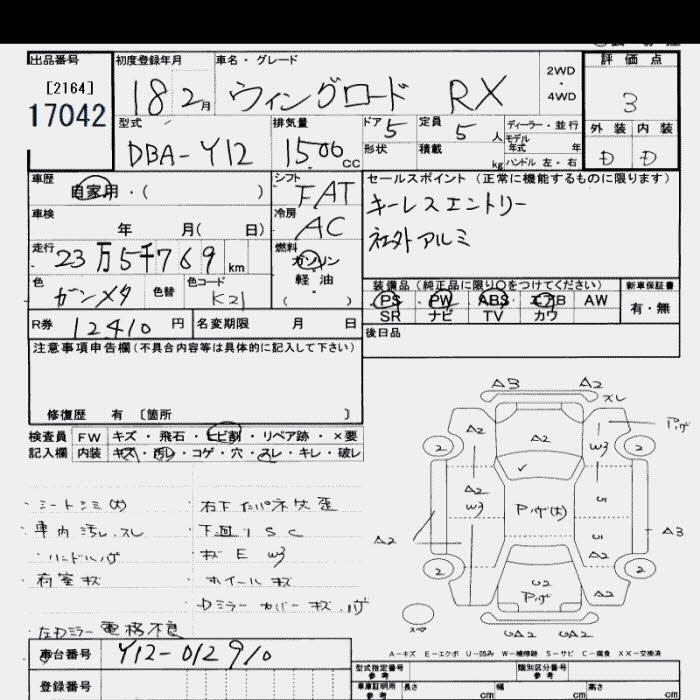 出品番号 初度登録年月 車名・グレード 評価点
[2164]
17042
18 2月 ウィングロード RX 2WD ・ 4WD 3
型式 排気量 ドア 定員 ディーラー・並行 外装 内装
DBA-Y12 1506 CC 5 5人 モデル年式 年 D D
形状 積載 kg ハンドル 左・右
車歴 シフト セールスポイント(正常に機能するものに限ります)
自家用・( ) FAT キーレスエントリー
車検 冷房 社外アルミ
年 月( 日) AC
走行 燃料
23万5千769km ガソリン
軽油
( )
色 色替 色コード 装備品(純正品に限り○をつけてください) 新車保証書
ガンメタ K21 PS PW ABS エアB AW 有・無
SR ナビ TV カワ
R券 12410円 名変期限 月 日 後日品
注意事項申告欄(不具合内容等は具体的に記入して下さい)
修復歴 有 〔箇所 〕
検査員 FW キズ・飛石・ヒビ割・リペア跡・×要
記入欄 内装 キズ・汚れ・コゲ・穴・スレ・キレ・破レ
・シートシミ(大) ・右下インパネ欠歪
・車内汚レ、スレ ・下回りSC
・ハンドルハゲ ・キズ E W3
・荷室キズ ・ホイールキズ
・Dミラーカバーキズ、ハゲ
・左Dミラー電格不良
A3 A2 スレ
Pハゲ
A2 A2 W3
2 2
A2 W3 Pハゲ(大) U
A2 U A3
A2
2 2
U2 Pハゲ A2
UA2 UA2
A-キズ E-エクボ U-凹み W-補修跡 S-サビ C-腐食 XX-交換済
車台番号 Y12-012910
登録番号
型式指定番号 参考 類別区分番号 参考
車庫証明用 参考 長さ cm 幅 cm 高さ cm